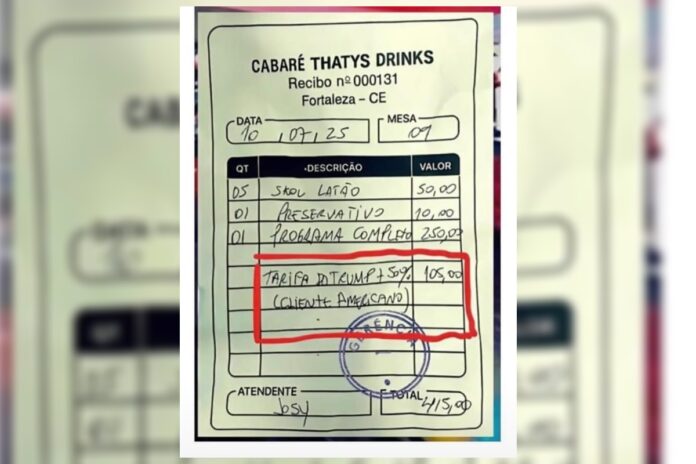 CABARÉ THATYS DRINKS
Recibo nº 000131
Fortaleza – CE
DATA 10,07,25 MESA 09
QT DESCRIÇÃO VALOR
05 SKOL LATÃO 50,00
01 PRESERVATIVO 10,00
01 PROGRAMA COMPLETO 250,00
TARIFA DO TRUMP + 50% 105,00
(CLIENTE AMERICANO)
GERÊNCIA
ATENDENTE Josy TOTAL 415,00